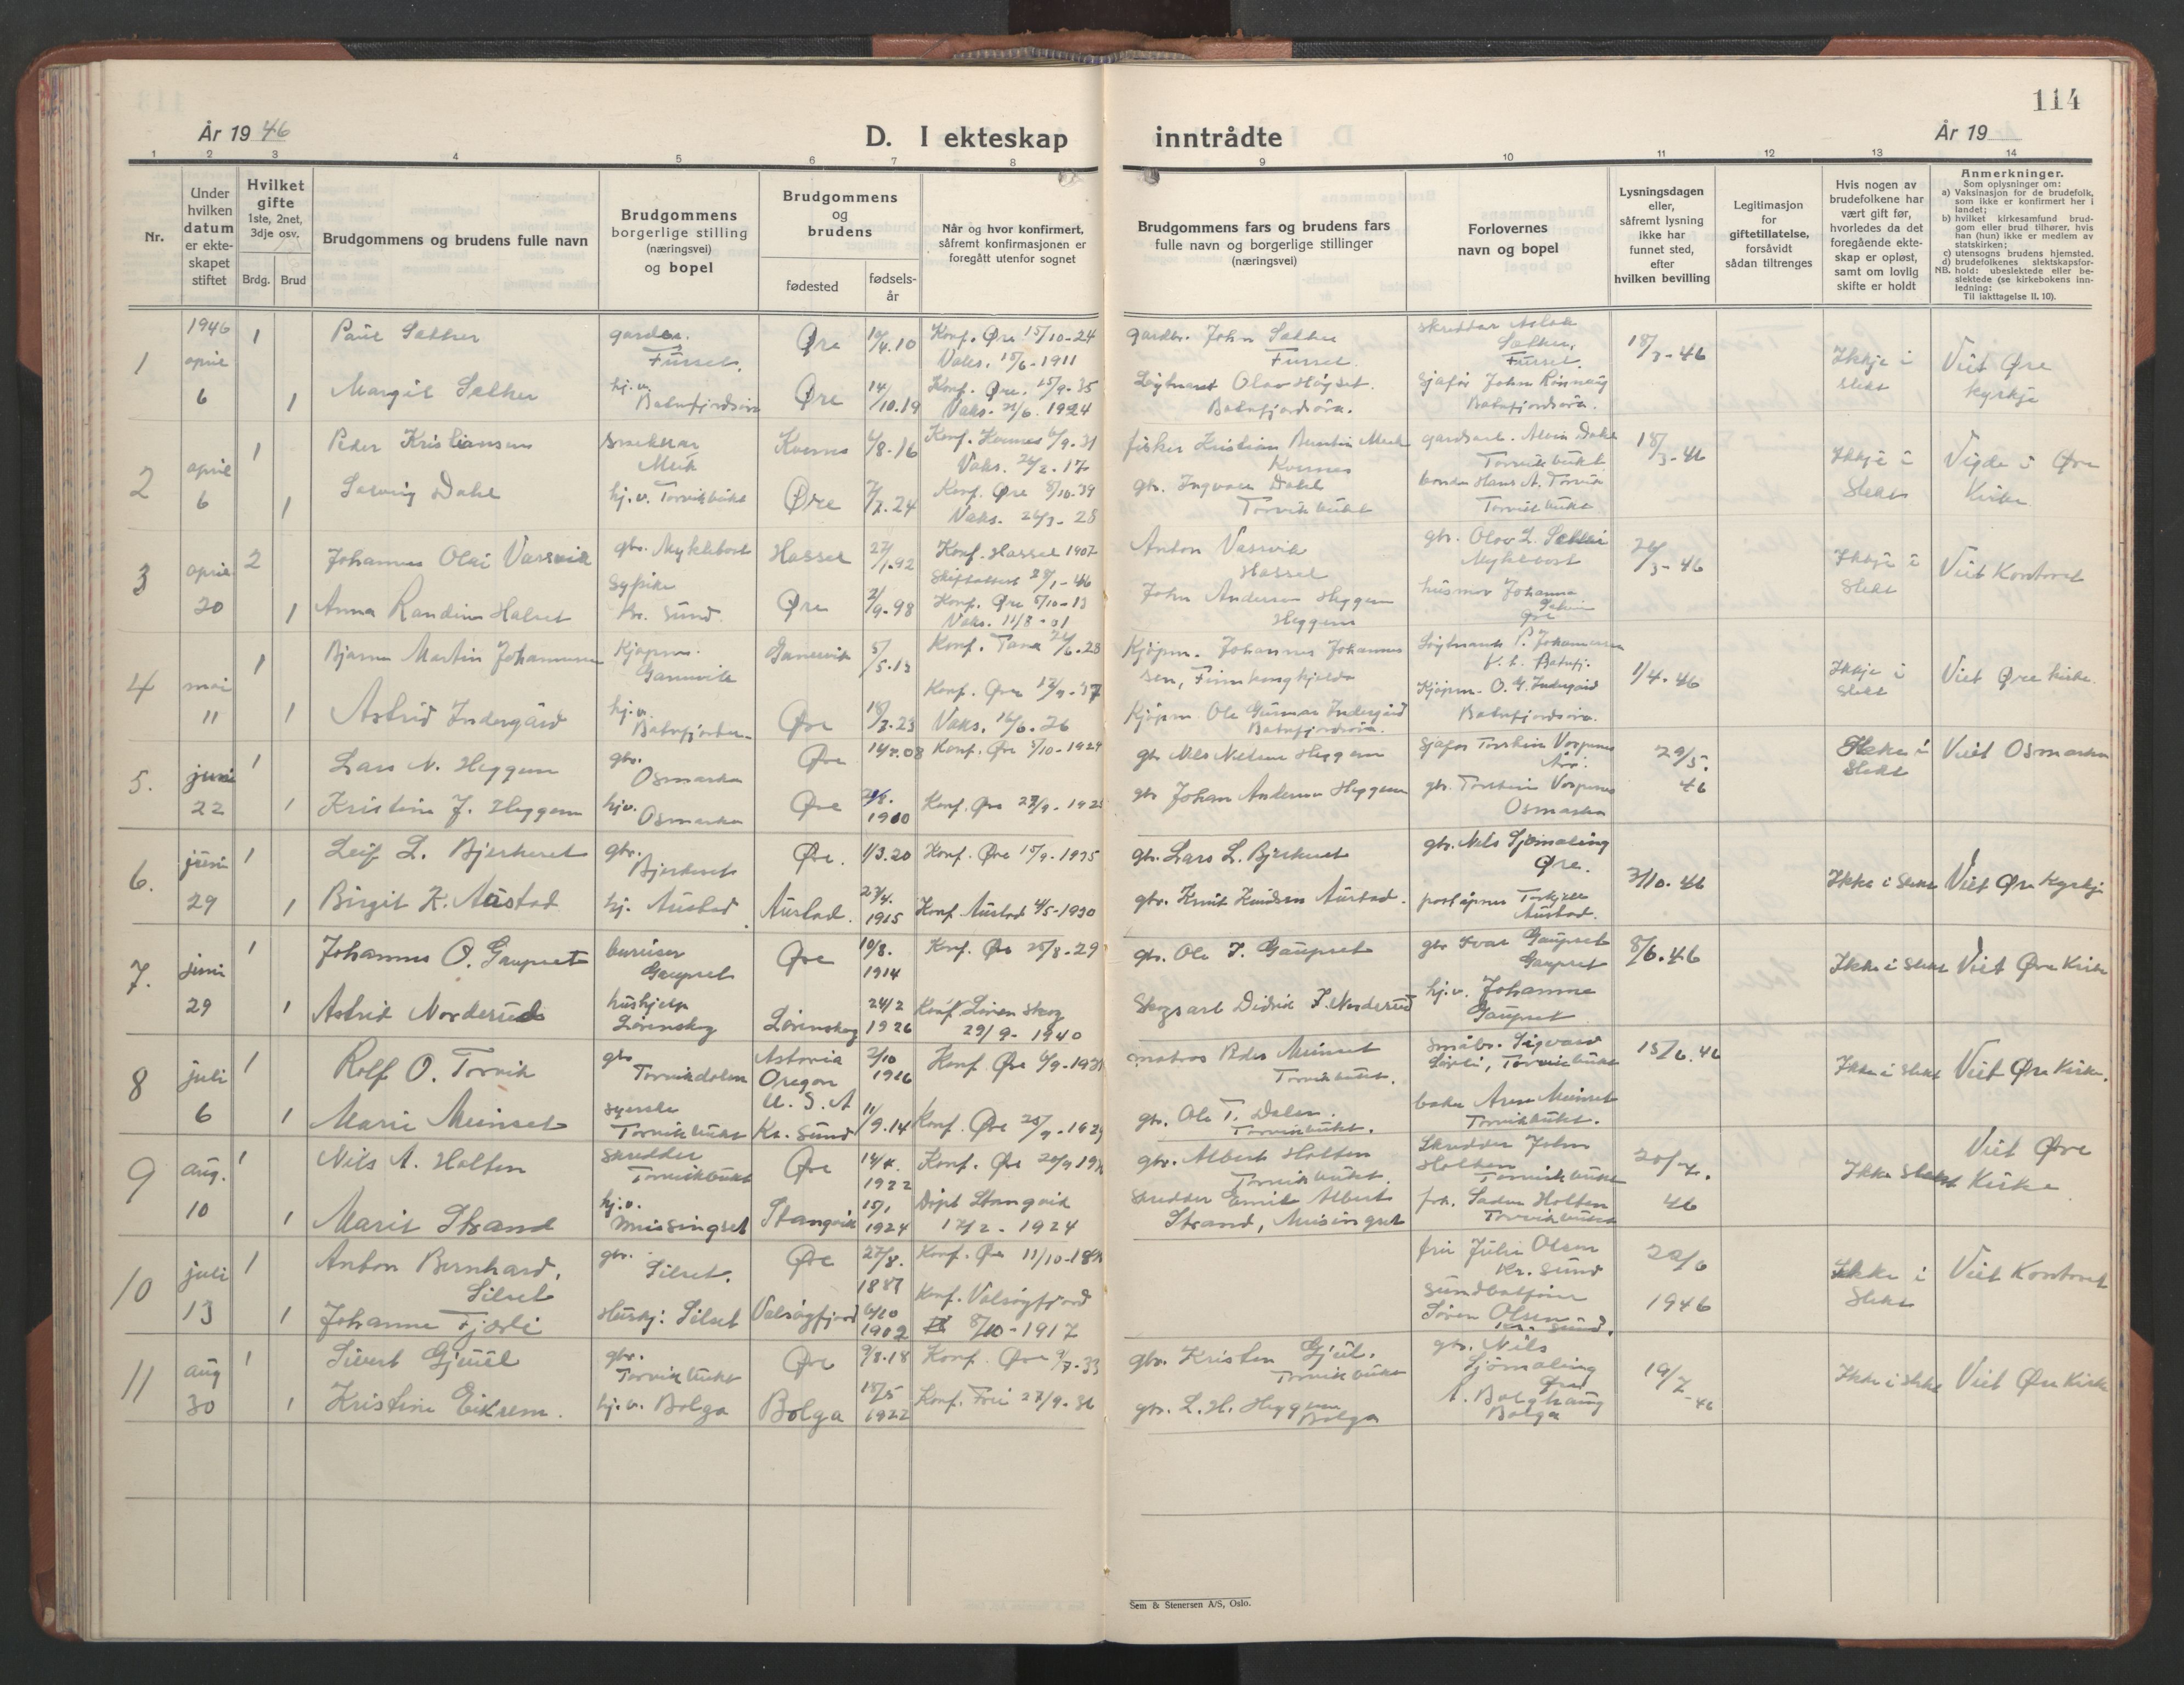 114
År 19 46
D. I ekteskap inntrådte
År 19
1 2 3 4 5 6 7 8 9 10 11 12 13 14
Nr.
Under hvilken datum er ekteskapet stiftet
Hvilket gifte 1ste, 2net, 3dje osv.
Brdg. Brud
Brudgommens og brudens fulle navn
Brudgommens borgerlige stilling (næringsvei) og bopel
Brudgommens og brudens
fødested
fødselsår
Når og hvor konfirmert, såfremt konfirmasjonen er foregått utenfor sognet
Brudgommens fars og brudens fars fulle navn og borgerlige stillinger (næringsvei)
Forlovernes navn og bopel
Lysningsdagen eller, såfremt lysning ikke har funnet sted, efter hvilken bevilling
Legitimasjon for giftetillatelse, forsåvidt sådan tiltrenges
Hvis nogen av brudefolkene har vært gift før, hvorledes da det foregående ekteskap er opløst, samt om lovlig skifte er holdt
Anmerkninger.
Som oplysninger om:
a) Vaksinasjon for de brudefolk, som ikke er konfirmert her i landet;
b) hvilket kirkesamfund brudgom eller brud tilhører, hvis han (hun) ikke er medlem av statskirken;
c) utensogns brudens hjemsted.
d) brudefolkenes slektskapsforhold: ubeslektede eller beslektede (se kirkebokens innledning:
NB.
Til iakttagelse II. 10).
1 1946 april 6
1 Paul Sæther Fursel. Øre 10/4.10 Konf. Øre 15/10-24
Vaks. 15/6-1911
gardbr. John Sæther Fursel 18/3-46 Ikkje i slekt Viet Øre kyrkje
1 Margit Sæther hj.v. Batnfjordsøra Øre 14/10.19 Konf. Øre. 15/9-35
Vaks. 1924
Olav Høgset. Batnfjordsøra. sjafør John Rønning Batnfjordsøra.
2 april 6
1 Peder Kristiansen Meik Kvernes 6/8-16 Konf. Kvernes 6/9-31
Vaks. 26/2-17
fisker Kristian Meek Kvernes Torvikbukt 18/3-46 Ikkje i slekt Vigde i Øre Kirke
1 Solveig Dahl hj.v. Torvikbukt Øre 24 Konf. Øre 8/10-39
Vaks. 28
gbr. Ingvald Dahl Torvikbukt bonde Hans A. Torvik Torvikbukt
3 april 20
2 Johannes Olai Vassvik gbr. Myklebost Hassel 27/1.92 Konf. Hassel 1907
Anton Vassvik Hassel gbr. Olav L. Myklebost 46 Ikkje i slekt Viet Kontoret
1 Anna Randine Halset Kr. sund. Øre 2/9-98 Konf. Øre 5/10-13
Vaks. 11/8-01
John Anderson Heggem Heggem husmor Johanna Øre
4 mai 11
1 Bjarne Martin Johannessen Kjøpm. Gamvik 5/5.13 Konf. Tana 28
Kjøpm. Johannes Johannessen, Finnkongkjeila P. Johannessen Batnfj. 1/4.46 Ikkje i slekt Viet Øre kirke.
1 Astrid Indergård hj.v. Øre 23 Konf. Øre 37
Vaks. 26
Kjøpm. Ole Gunnar Indergård Batnfjordsøra. Kjøpm. O. G. Indergård Batnfjordsøra.
5. juni 22
1 Lars N. Heggem gbr. Osmarka Øre 08 Konf. Øre 1924
gbr. Nils Nielsen Heggem 29/5. 46 Ikke i slekt Viet Osmarka
1 Kristine J. Heggem hjv. Osmarka Øre 1910 Konf. Øre 27/9-
gbr Johan Anderson Heggem gbr. Torstein Osmarka
6. juni 29
1 Leif L. Bjerkeset gbr. Bjerkeset Øre. 1/3.20 Konf. Øre 15/9-1935
gbr. Lars L. Bjerkeset gbr. Nils Sjømæling Øre. 46 Ikke i slekt Viet Øre Kyrkje
1 Birgit K. Austad hj. Austad Austad. 27/4. 1915 Konf. Austad 1930
gbr. Knut Knudsen Austad. poståpner Torkjell Austad.
7. juni 29
1 Johannes O. Gaupset bureiser Gaupset Øre 10/8. 1914 Konf. Øre 25/8-29
gbr. Ole J. Gaupset gbr Ivar Gaupset Gaupset 8/6.46 Ikke i slekt Viet Øre Kirke
1 Astrid Norderud hushjelp Lørenskog Lørenskog 24/2 1926 Konf. Lørenskog 29/9-1940
Skogsarb Didrik J. Norderud hj.v. Johanna Gaupset
8 juli 6
1 Rolf O. Torvik gbr Torvikdalen Astoria Oregon U.S.A 2/10 1916 Konf. Øre
matros Peder Meinset Torvikbukt. småbr. Sigvard Torvikbukt 15/6.46 Ikke i slekt Viet Øre Kirke.
1 Marie Meinset syerske Torvikbukt Kr. Sund 11/9.14 Konf. Øre
gbr. Ole T. Dalen. Torvikbukt. baker Arne Meinset Torvikbukt.
9 aug. 10
1 Nils A. Holten skredder Torvikbukt Øre 14/4. 1922 Konf. Øre
gbr. Albert Holten Torvikbukt. Skredder John Holten Torvikbukt 20/7. 46 Ikke slekt Viet Øre Kirke
1 Marit Strand hj.v. Meisingset Stangvik 15/1 1924 Døpt Stangvik 17/2-1924
Skredder Emil Albert Strand, Meisingset frk. Holten Torvikbukt
10 juli 13
1 Anton Bernhard Silset gbr. Silset. Øre 27/8. 1887 Konf. Øre 11/10-
fru Julie Olsen Kr. sund 22/6 1946 Ikke i slekt Viet Kontoret
1 Johanne Fjærli Hushj: Silset Valsøyfjord 6/10 1902 Konf. Valsøyfjord 8/10-1917
Søren Olsen Kr. sund.
11 aug 30
1 Sivert Gjeül gbr. Torvikbukt Øre 9/8.18 Konf. Øre 33
gbr. Kristen Gjül. Torvikbukt gbr. Nils Sjømæling Øre 19/7-46 Ikke i slekt Viet Øre Kirke
1 Kristine Eikrem. hj.v. Bolga Bolga 18/5 1922 Konf. Frei 27/9-36
gbr. L. H. Heggem Bolga A. Bolghaug Bolga
Sem & Stenersen A/S, Oslo.